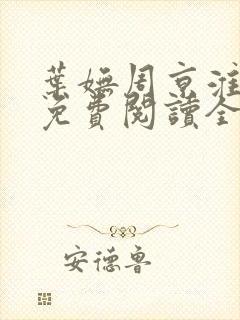 葉嫵周京淮
免費閱讀全
安德魯